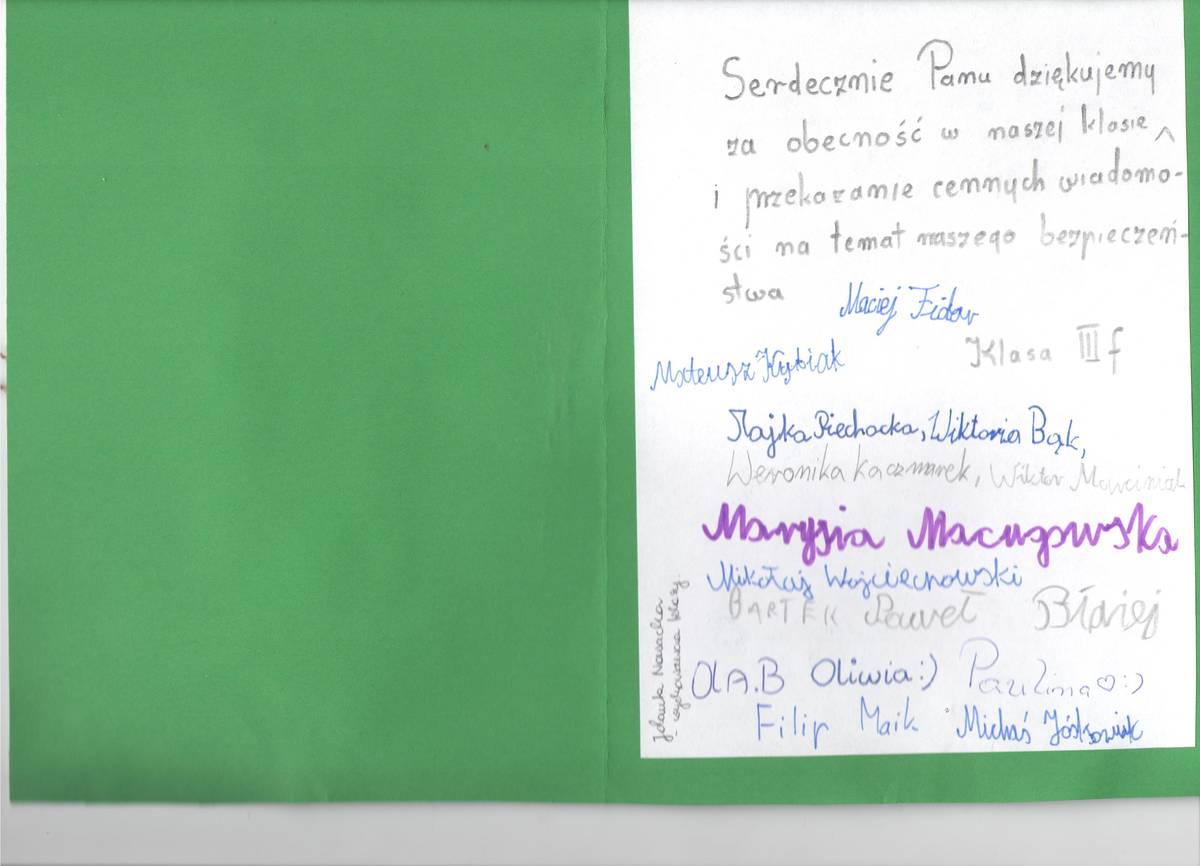 Serdecznie Panu dziękujemy
za obecność w naszej klasie
i przekazanie cennych wiadomo-
ści na temat naszego bezpieczeń-
stwa
Maciej
Klasa III f
Mateusz
Majka Piechocka, Wiktoria Bąk,
Weronika Kaczmarek, Wiktor Marciniak
Marysia Macugowska
Mikołaj Wojciechowski
BARTEK Paweł Błażej
OLA.B Oliwia:) Paulina♡:)
Filip Maik Michaś Jóskowiak
Jolanta
- wychowawca klasy.